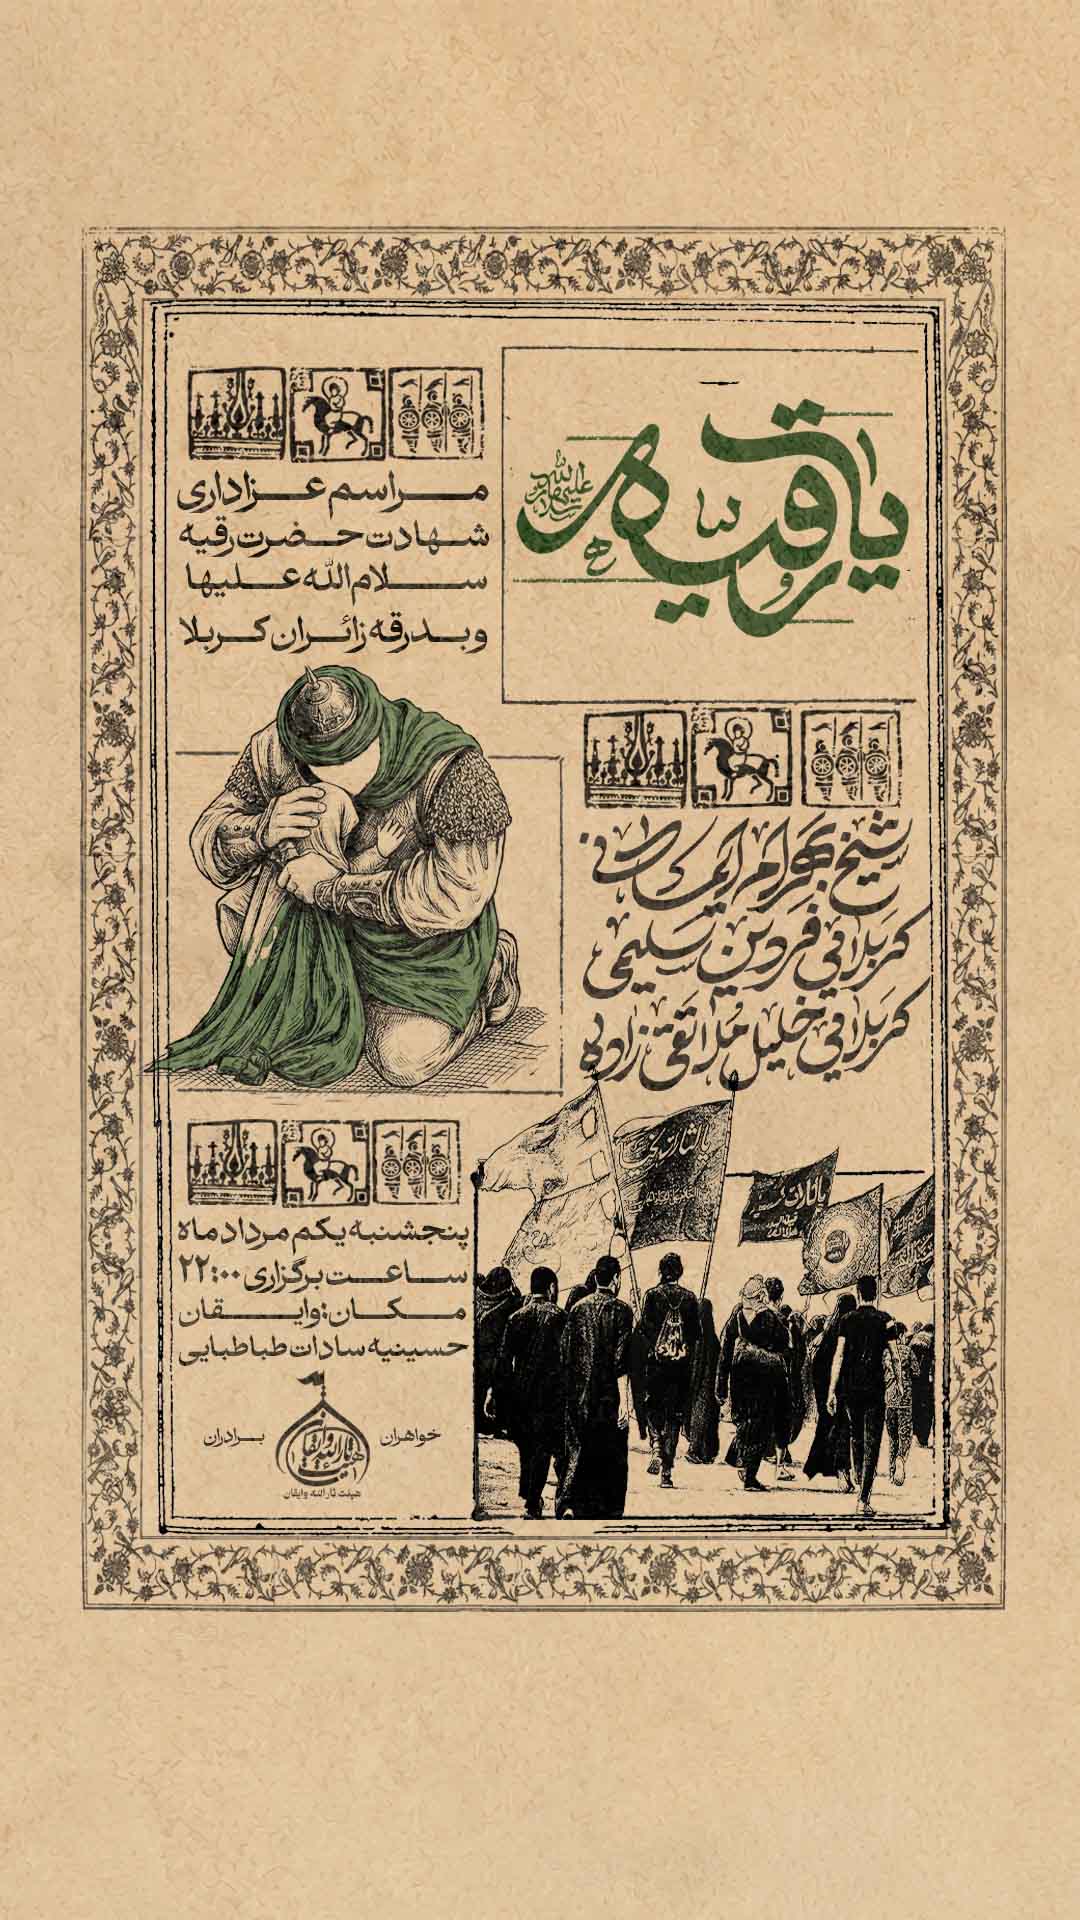 یا رقیه
علیها سلام الله
مراسم عزاداری
شهادت حضرت رقیه
سلام الله علیها
و بدرقه زائران کربلا
شیخ بهرام ایمانی
کربلائی فردین سلیمی
کربلائی خلیل ملاتقی زاده
پنجشنبه یکم مرداد ماه
ساعت برگزاری ۲۲:۰۰
مکان: وایقان
حسینیه سادات طباطبایی
خواهران
برادران
هیئت ثارالله وایقان